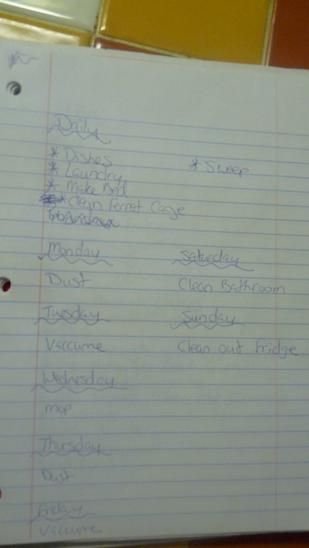 Daily
* Dishes
* Sweep
* Laundry
* Make Bed
* Clean Ferret Cage
Monday
Dust
Tuesday
Vaccume
Wednesday
mop
Thursday
Dust
Friday
Vaccume
Saturday
Clean Bathroom
Sunday
Clean out fridge